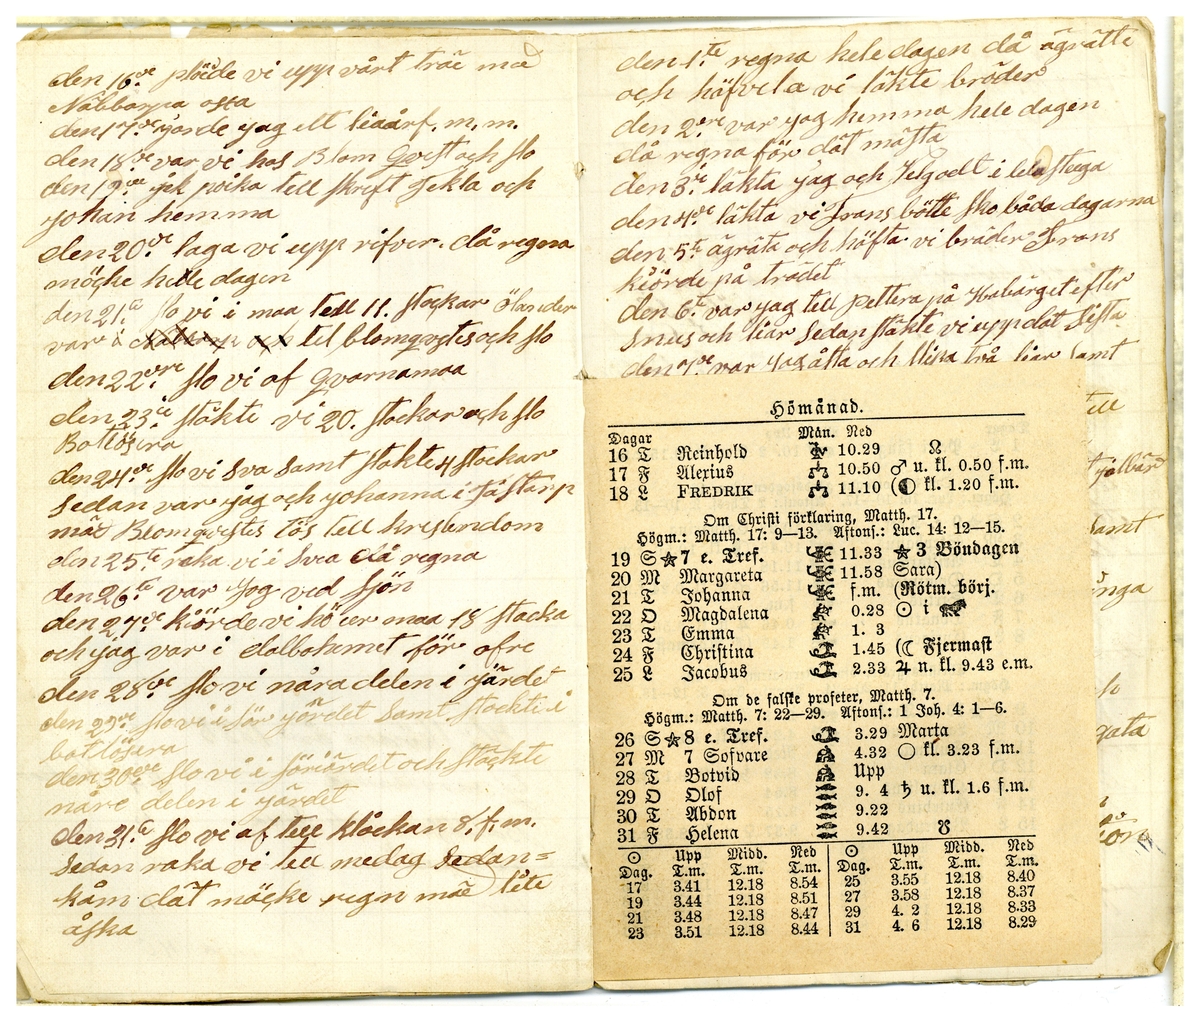 den 16de plöide vi upp vårt träe mæd
Nabbarpa osta
den 17de jorde jag ett liaårf. m, m.
den 18de var vi hos Blom Qvist och slo
den 19de jek poika tell skrift Tekla och
Johan hemma
den 20de laga vi upp rifver. då regna
möcke hele dagen
den 21te slo vi i maa tell 11. stockar Ölander
var i till blomqvstes och slo
den 22dre slo vi af Qvarnamaa
den 23ie ståkte vi 20. stockar och slo
Botlösera
den 24de slo vi Sva Samt stakte 4 stockar
Sedan var jag och Johanna i Tåstarp
mæd Blomqvistes tös tell kresendom
den 25te raka vi i Svea då regna
den 26te var Jag ved Sjön
den 27de kiörde vi hö ier maa 18 stacka
och jag var i dalbohemet för ofre
den 28de slo vi nåra delen i järdet
den 29de slo vi i Sör jördet Samt stockte i
botlösara
den 30de slo vi i söriärdet och stockte
nåre delen i järdet
den 31te slo vi af tell klåckan 8. f. m.
Sedan raka vi tell medag Sedan=
kåm dåt möcke regn mæd lite
åska
den 1te regna hele dagen då ägrätte
och häfvla vi läkte bräder
den 2dre var jag hemma hele dagen
då regna för dåt mästa
den 3ie läkta jag och Helgodt i lelastuga
den 4de läkta vi Frans bötte sko båda dagarna
den 5te ägräta och häfta vi bräder Frans
kiörde på trådet
den 6te var jag tell pettera på Habärget efter
Snus och liar Sedan stäkte vi upp dåt Sista
den 7de var Jag åtta och slipa två liar Samt
Hömånad.
Dagar Mån. Ned
16 T Reinhold 10.29 ☊
17 F Alexius 10.50 ♂ u. kl. 0.50 f.m.
18 L FREDRIK 11.10 (◐ kl. 1.20 f.m.
Om Christi förklaring, Matth. 17.
Högm.: Matth. 17: 9—13. Aftons.: Luc. 14: 12—15.
19 S ★ 7 e. Tref. 11.33 ★ 3 Böndagen
20 M Margareta 11.58 Sara)
21 T Johanna f.m. (Rötm. börj.
22 O Magdalena 0.28 ☉ i
23 T Emma 1. 3
24 F Christina 1.45 (☾ Fjermast
25 L Jacobus 2.33 ♃ n. kl. 9.43 e.m.
Om de falske profeter, Matth. 7.
Högm.: Matth. 7: 22—29. Aftons.: 1 Joh. 4: 1—6.
26 S ★ 8 e. Tref. 3.29 Marta
27 M 7 Sofvare 4.32 ○ kl. 3.23 f.m.
28 T Botvid Upp
29 O Olof 9. 4 ♄ u. kl. 1.6 f.m.
30 T Abdon 9.22
31 F Helena 9.42 ☋
☉ Upp Midd. Ned ☉ Upp Midd. Ned
Dag. T.m. T.m. T.m. Dag. T.m. T.m. T.m.
17 3.41 12.18 8.54 25 3.55 12.18 8.40
19 3.44 12.18 8.51 27 3.58 12.18 8.37
21 3.48 12.18 8.47 29 4. 2 12.18 8.33
23 3.51 12.18 8.44 31 4. 6 12.18 8.29